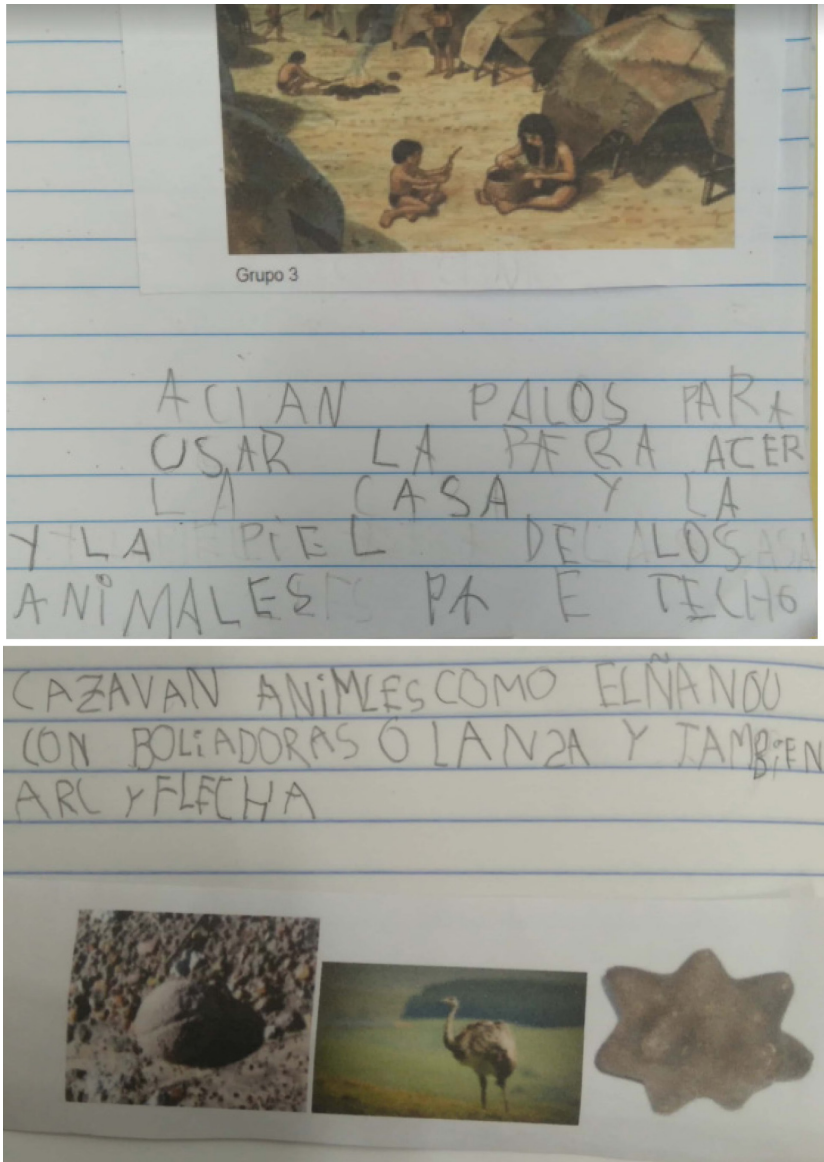 Grupo 3
ACIAN PALOS PARA
USAR LA PARA ACER
LA CASA Y LA
Y LA PIEL DE LOS
ANIMALES PA E TECHO
CAZAVAN ANIMLES COMO EL ÑANDU
CON BOLIADORAS O LANZA Y TAMBIEN
ARC Y FLECHA